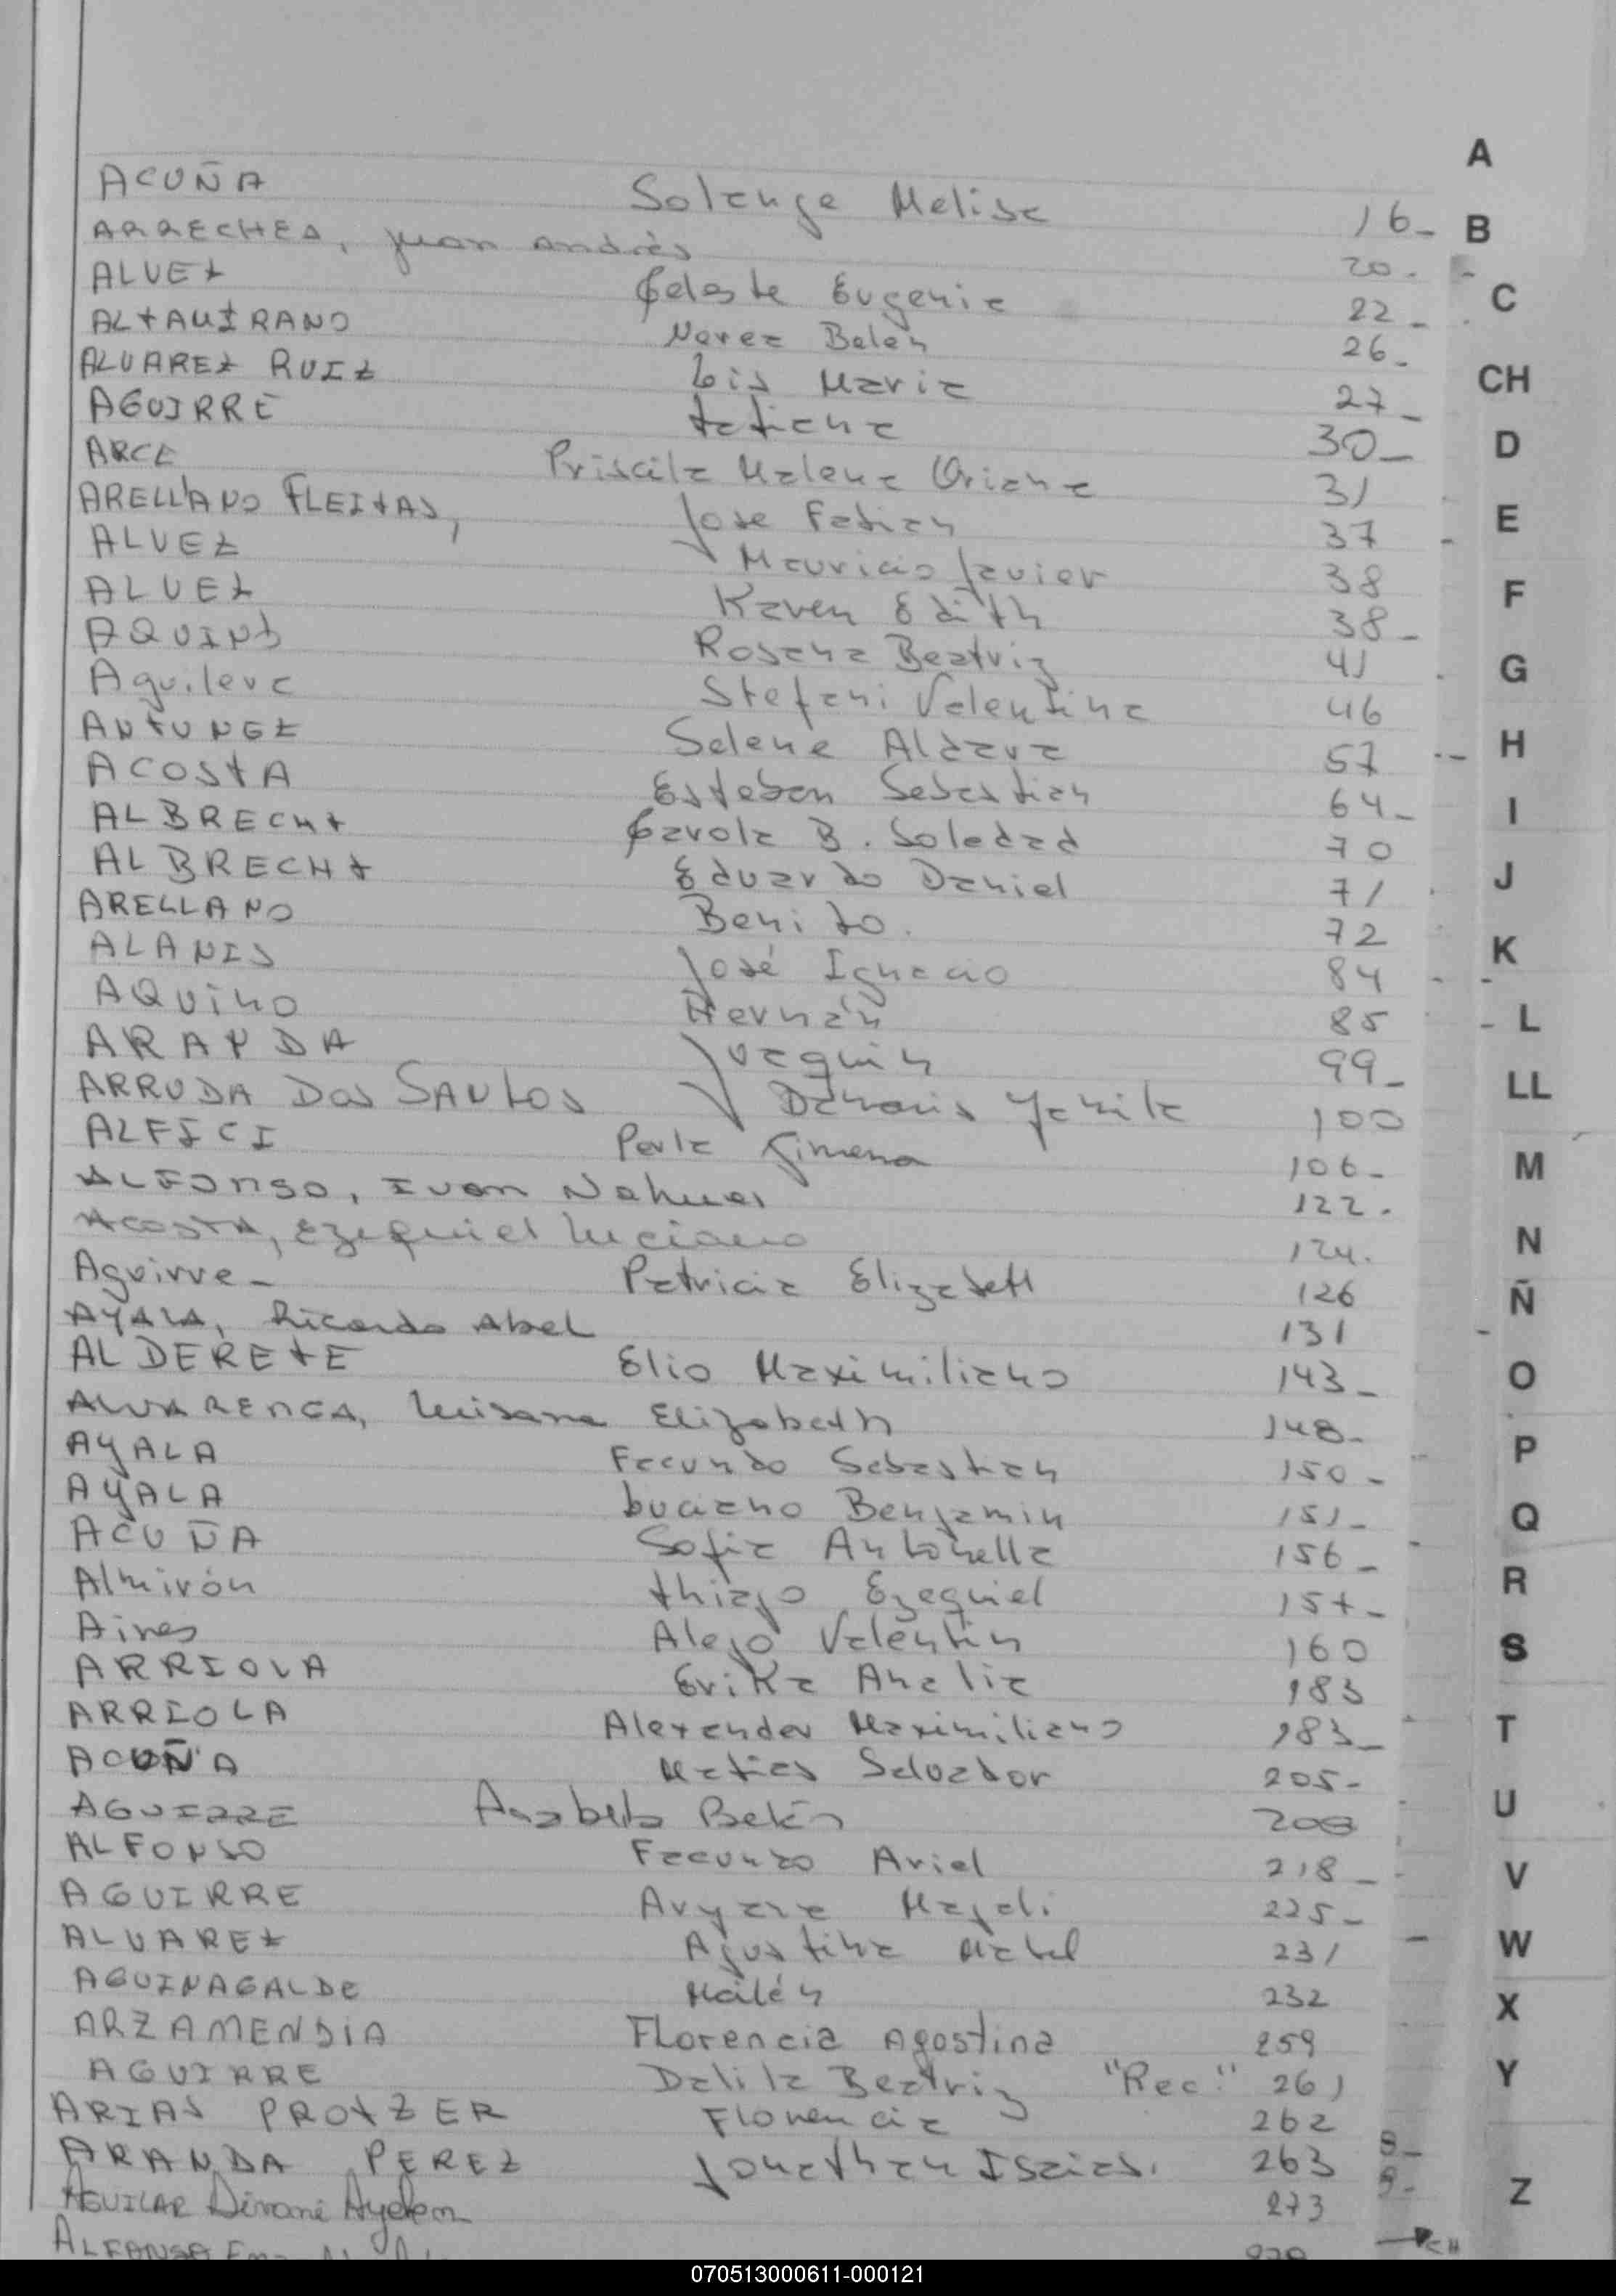 A
ACUÑA Solange Melisa 16-
B
ARRECHEA, Juan Andrés 20.
ALVEZ Celeste Eugenia 22-
C
ALTAMIRANO Nerea Belén 26-
ALVAREZ RUIZ Liz María 27-
CH
AGUIRRE Tatiana 30-
D
ARCE Priscila Malena Oriana 31
ARELLANO FLEITAS, José Fabian 37
E
ALVEZ Mauricio Javier 38
ALVEZ Karen Edith 38-
F
AQUINO Rosana Beatriz 41
Aguilera Stefani Valentina 46
G
ANTUNEZ Selene Aldara 57
H
ACOSTA Esteban Sebastian 64-
ALBRECHT Carola B. Soledad 70
I
ALBRECHT Eduardo Daniel 71
J
ARELLANO Benito. 72
ALANIS José Ignacio 84
K
AQUINO Hernán 85
L
ARANDA Joaquin 99-
ARRUDA Dos SANTOS Damaris Yamila 100
LL
ALFICI Perla Ximena 106-
M
ALFONSO, Ivan Nahuel 122.
ACOSTA, Ezequiel Luciano 124.
N
Aguirre- Patricia Elizabeth 126
Ñ
AYALA, Ricardo Abel 131
ALDERETE Elio Maximiliano 143-
O
ALVARENGA, Luisana Elizabeth 148-
AYALA Facundo Sebastian 150-
P
AYALA Luciano Benjamin 151-
Q
ACUÑA Sofia Antonella 156-
Almirón Thiago Ezequiel 157-
R
Aires Alejo Valentin 160
S
ARRIOLA Erika Analia 183
ARRIOLA Alexander Maximiliano 183-
T
ACUÑA Matias Salvador 205-
AGUIRRE Anabela Belén 208
U
ALFONSO Facundo Ariel 218-
V
AGUIRRE Magali 225-
ALVAREZ Agustina Mabel 231
W
AGUINAGALDE Mailén 232
X
ARZAMENDIA Florencia Agostina 259
AGUIRRE Dalila Beatriz "Rec." 261
Y
ARIAS PROTZER Florencia 262
ARANDA PEREZ Jonathan Isaias. 263
AGUILAR Ayelen 273
Z
070513000611-000121